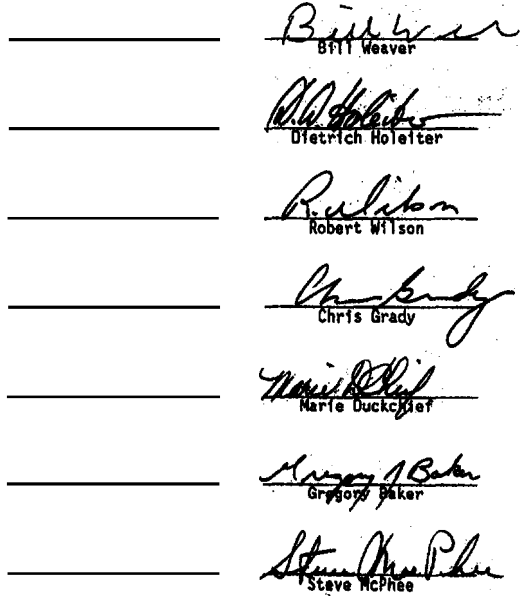 Bill Weaver
Bill Weaver
D. D. Holeiter
Dietrich Holeiter
R. Wilson
Robert Wilson
Chris Grady
Chris Grady
Marie Duckchief
Gregory J Baker
Gregory Baker
Steve MacPhee
Steve McPhee